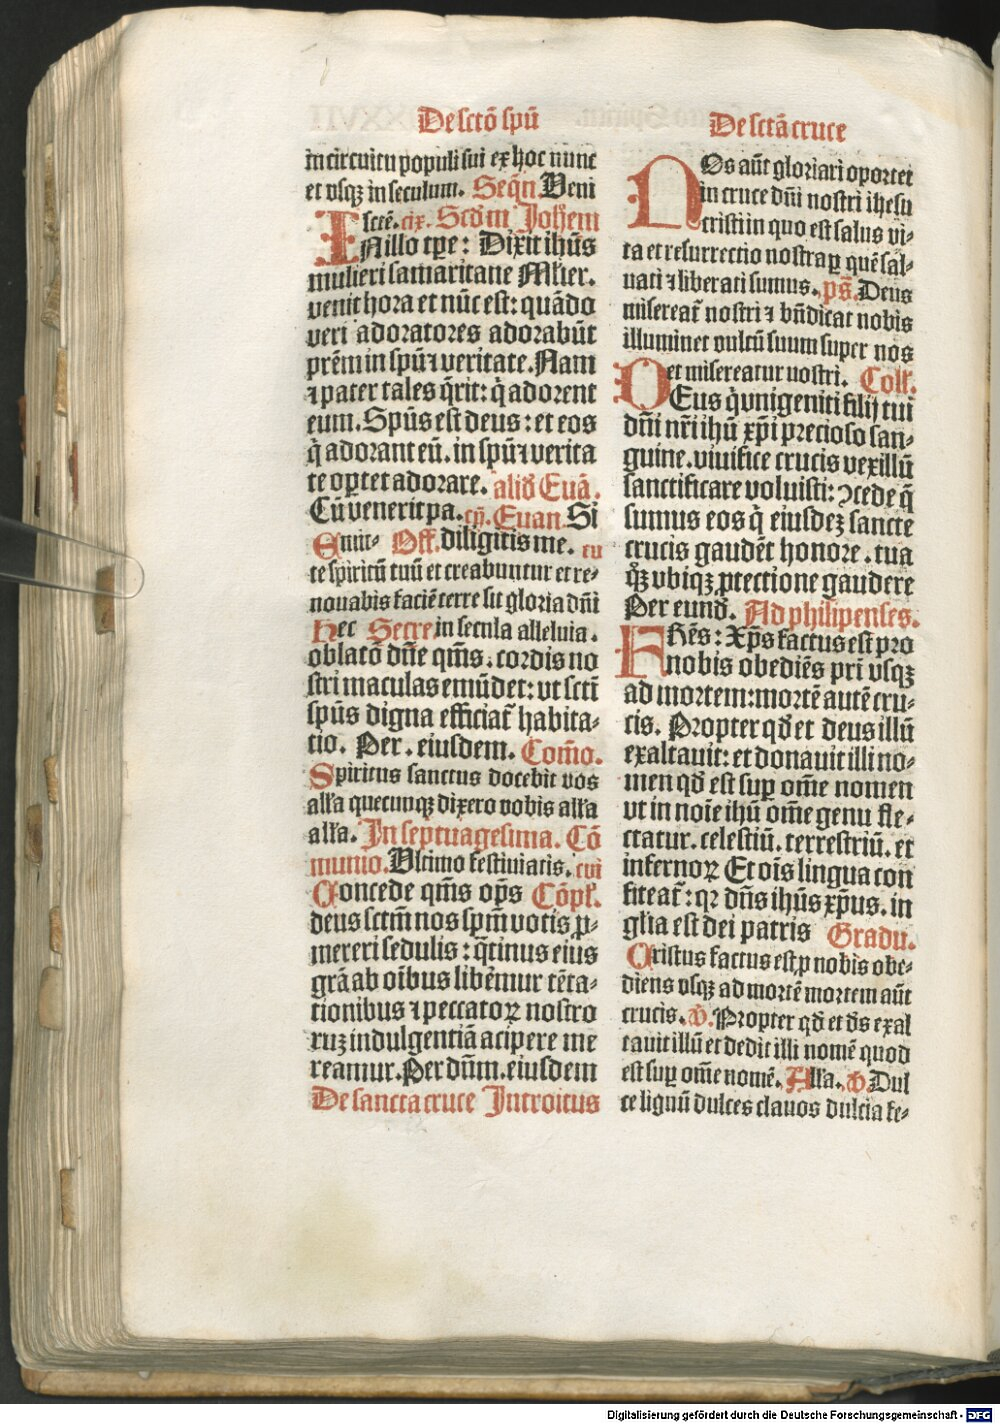 De sctō spū
in circuitu populi sui ex hoc nunc
et vsqꝫ in seculum. Seqn̄ Veni
sctē. cix. Scdm̄ Joh'em
INillo tꝑe: Dixit ihūs
mulieri samaritane Ml'ier.
venit hora et nūc est: quādo
veri adoratores adorabūt
prēm in spū ⁊ veritate. Nam
⁊ pater tales q̄rit: q̄ adorent
eum. Spūs est deus: et eos
q̄ adorant eū. in spū ⁊ verita
te oꝑtet adorare. aliđ Euā.
Cū venerit pa. Euan. Si
diligitis me. Off. Emit- eu
te spiritū tuū et creabuntur et re-
nouabis faciē terre sit gloria dn̄i
in secula alleluia. Secre Hec
oblatō dn̄e qm̄s. cordis no
stri maculas emūdet: vt scti
spūs digna efficiat̄ habita-
tio. Per. eiusdem. Com̄o.
Spiritus sanctus docebit vos
all'a quecunqꝫ dixero vobis all'a
all'a. In septuagesima. Cō
munio. Vltimo festiuitatis. cui
Concede qm̄s op̄s Cōpl'.
deus sctm̄ nos spm̄ votis ꝓ-
mereri sedulis: q̄tinus eius
grā ab oībus lib'emur tēta-
tionibus ⁊ peccatoꝝ nostro
ruꝫ indulgentiā acipere me
reamur. Per dūm. eiusdem
De sancta cruce Introitus
De sctā cruce
NOs aūt gloriari oportet
in cruce dn̄i nostri ihesu
cristi in quo est salus vi-
ta et resurrectio nostra ꝑ quē sal-
uati ⁊ liberati sumus. pš. Deus
misereat̄ nostri ⁊ bn̄dicat nobis
illuminet vultū suum super nos
et misereatur nostri. Coll'.
DEus q̄ vnigeniti filij tui
dn̄i nr̄i ihū xp̄i precioso san-
guine. viuifice crucis vexillū
sanctificare voluisti: ꝯcede q̄
sumus eos q̄ eiusdeꝫ sancte
crucis gaudēt honore. tua
q̄ꝫ vbiqꝫ ꝓtectione gaudere
Per eund'. Ad philipenses.
FRēs: Xp̄s factus est pro
nobis obediēs pri vsqꝫ
ad mortem: mortē autē cru-
cis. Propter qđ et deus illū
exaltauit: et donauit illi no-
men qđ est suꝑ om̄e nomen
vt in noīe ihū om̄e genu fle-
ctatur. celestiū. terrestriū. et
infernoꝝ Et oīs lingua con
fiteat̄: qꝛ dn̄s ihūs xp̄us. in
glia est dei patris Gradu.
Cristus factus est ꝓ nobis obe-
diens vsqꝫ ad mortē mortem aūt
crucis. v̄. Propter qđ et đs exal
tauit illū et dedit illi nomē quod
est suꝑ om̄e nomē. All'a. v̄. Dul
ce lignū dulces clauos dulcia fe-
Digitalisierung gefördert durch die Deutsche Forschungsgemeinschaft - DFG